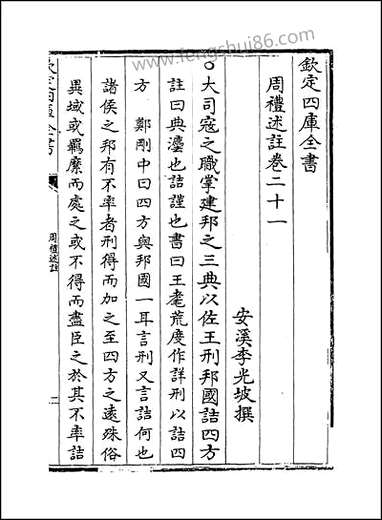 www.fengshui86.com
欽定四庫全書
周禮述註卷二十一
安溪李光坡撰
大司寇之職掌建邦之三典以佐王刑邦國詰四方
註曰典灋也詰謹也書曰王耄荒度作詳刑以詰四
方　鄭剛中曰四方與邦國一耳言刑又言詰何也
諸侯之邦有不率者刑得而加之至四方之遠殊俗
異域或羈縻而處之或不得而盡臣之於其不率詰
欽定四庫全書
周禮述註